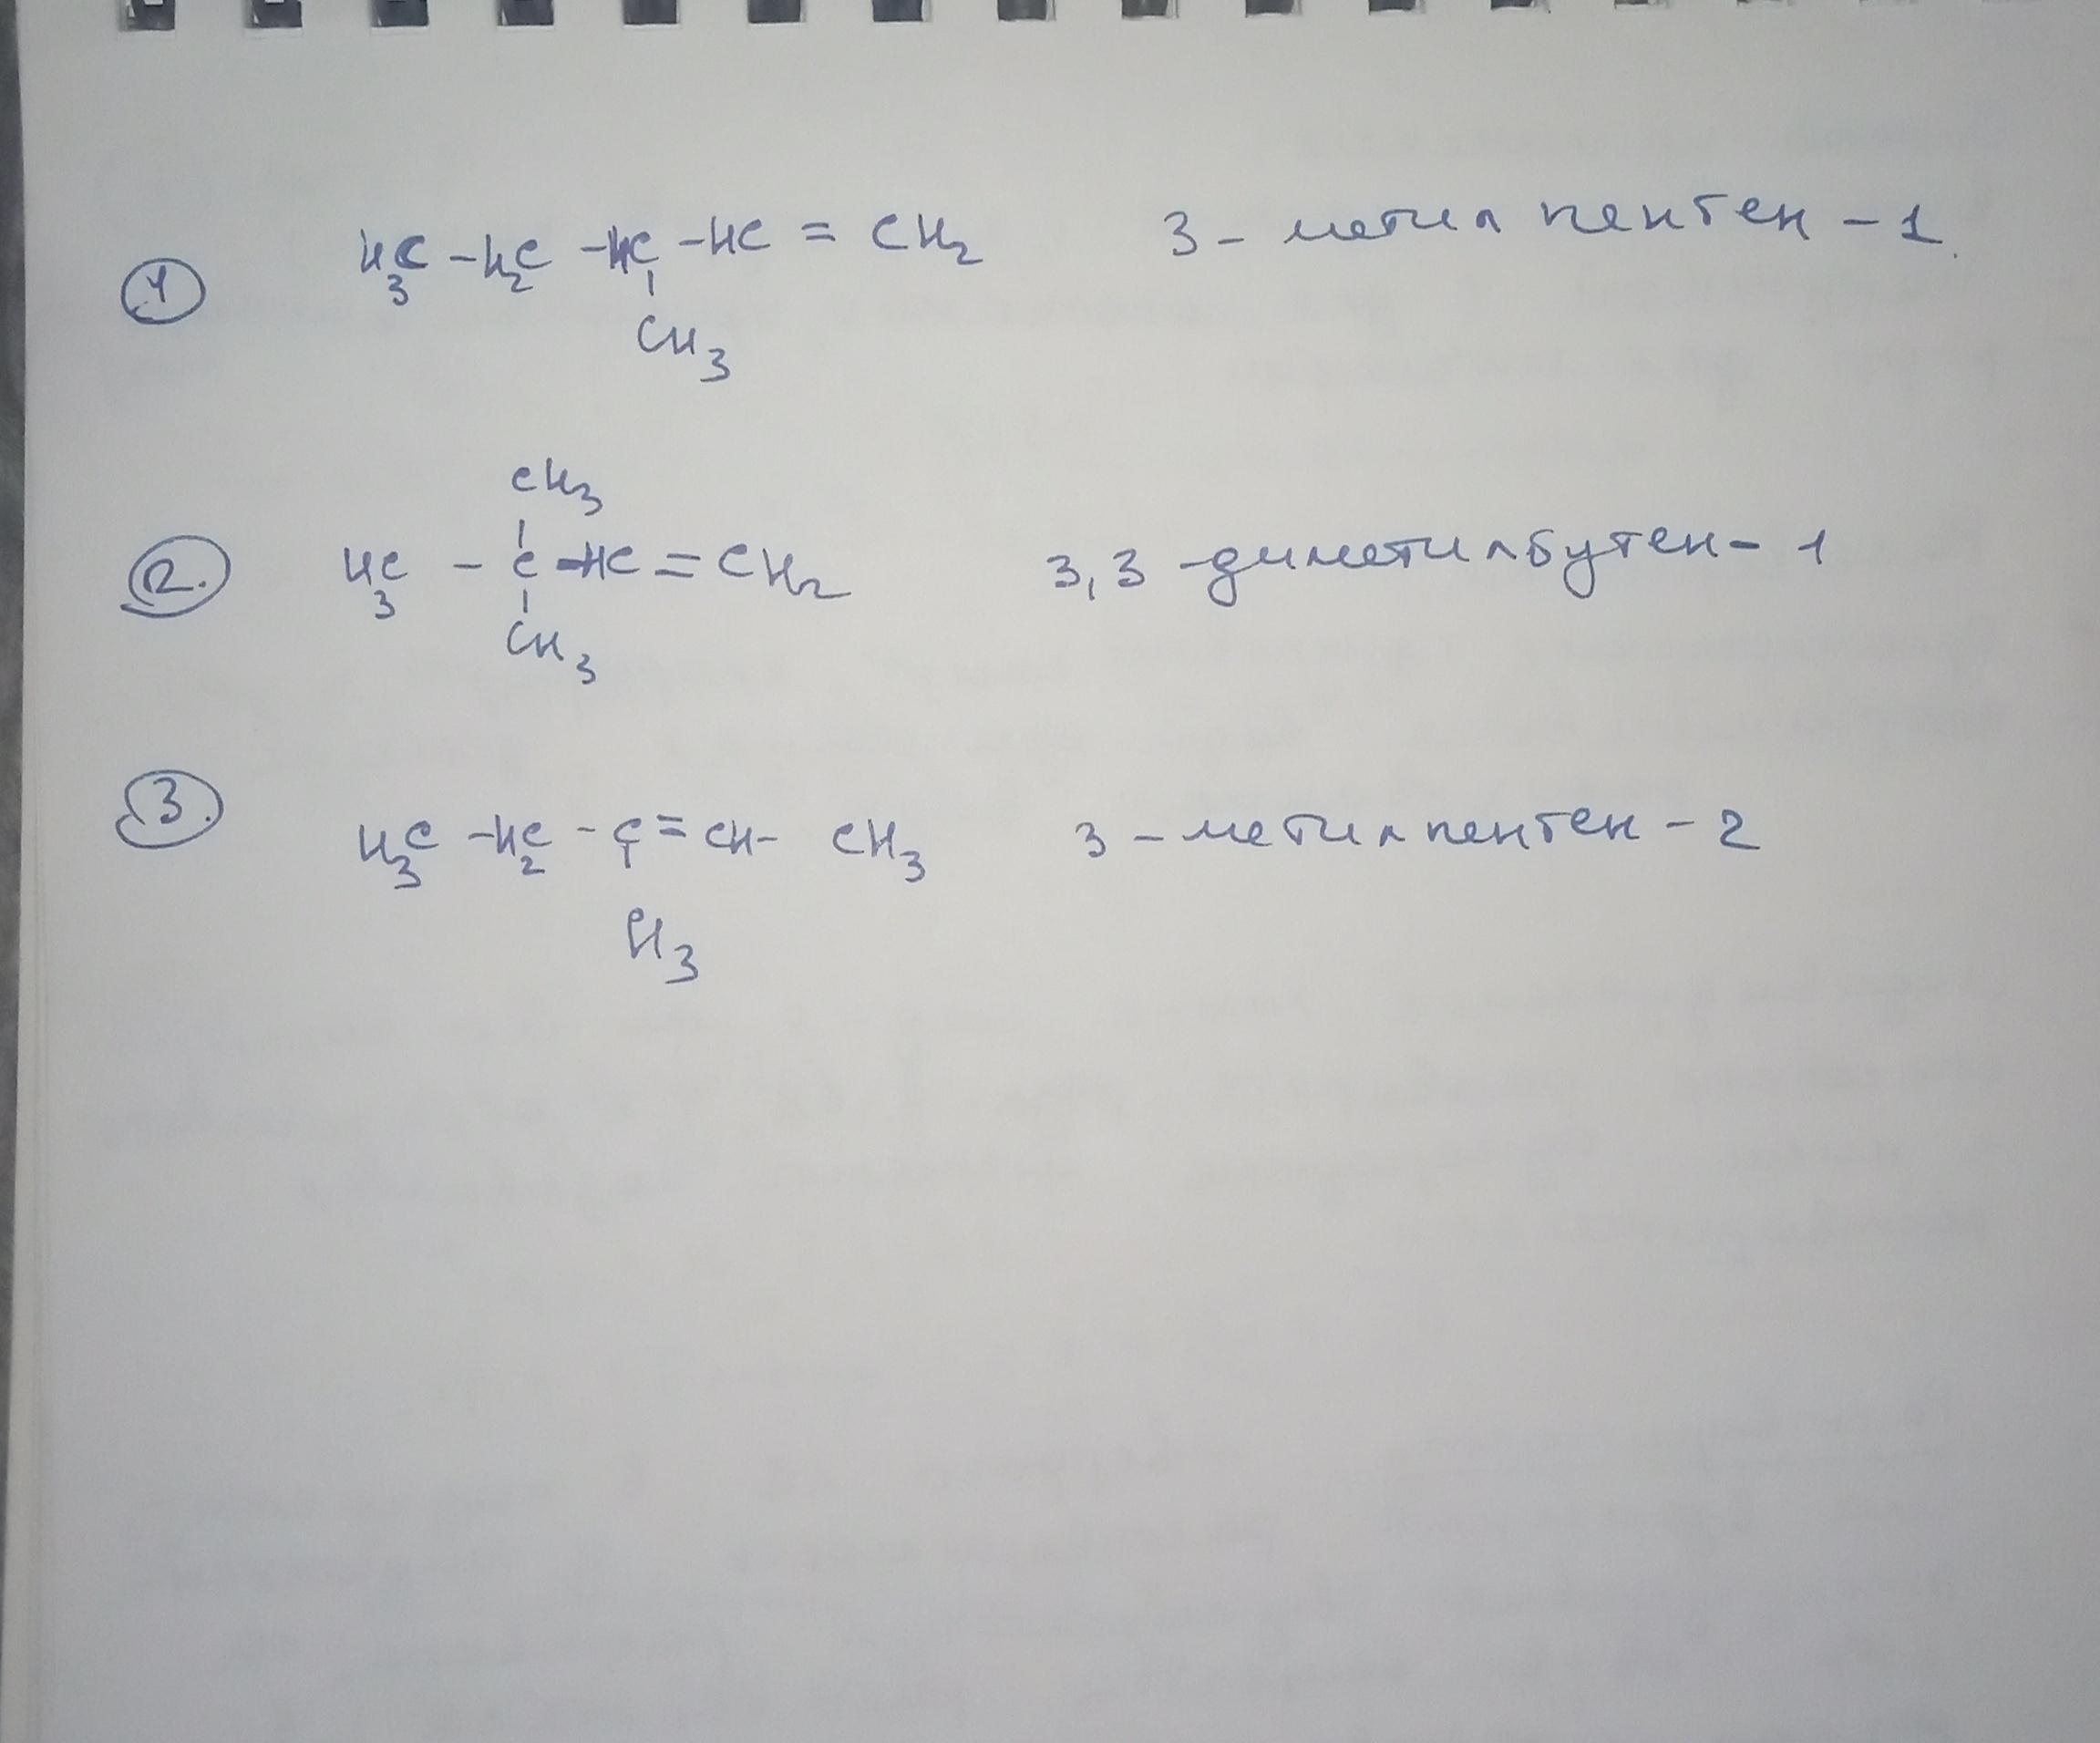 1 H₃C – H₂C – HC – HC = CH₂ 3 – метил пентен – 1.
CH₃
CH₃
2. H₃C – C – HC = CH₂ 3,3 – диметилбутен – 1
CH₃
3. H₃C – H₂C – C = CH – CH₃ 3 – метилпентен – 2
CH₃